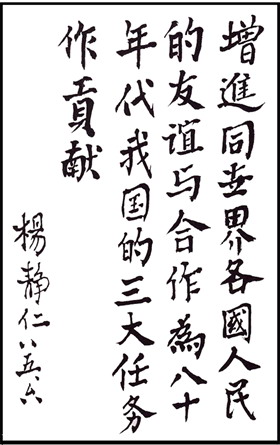 增進同世界各國人民
的友谊与合作為八十
年代我国的三大任务
作貢献
楊静仁 八五、六